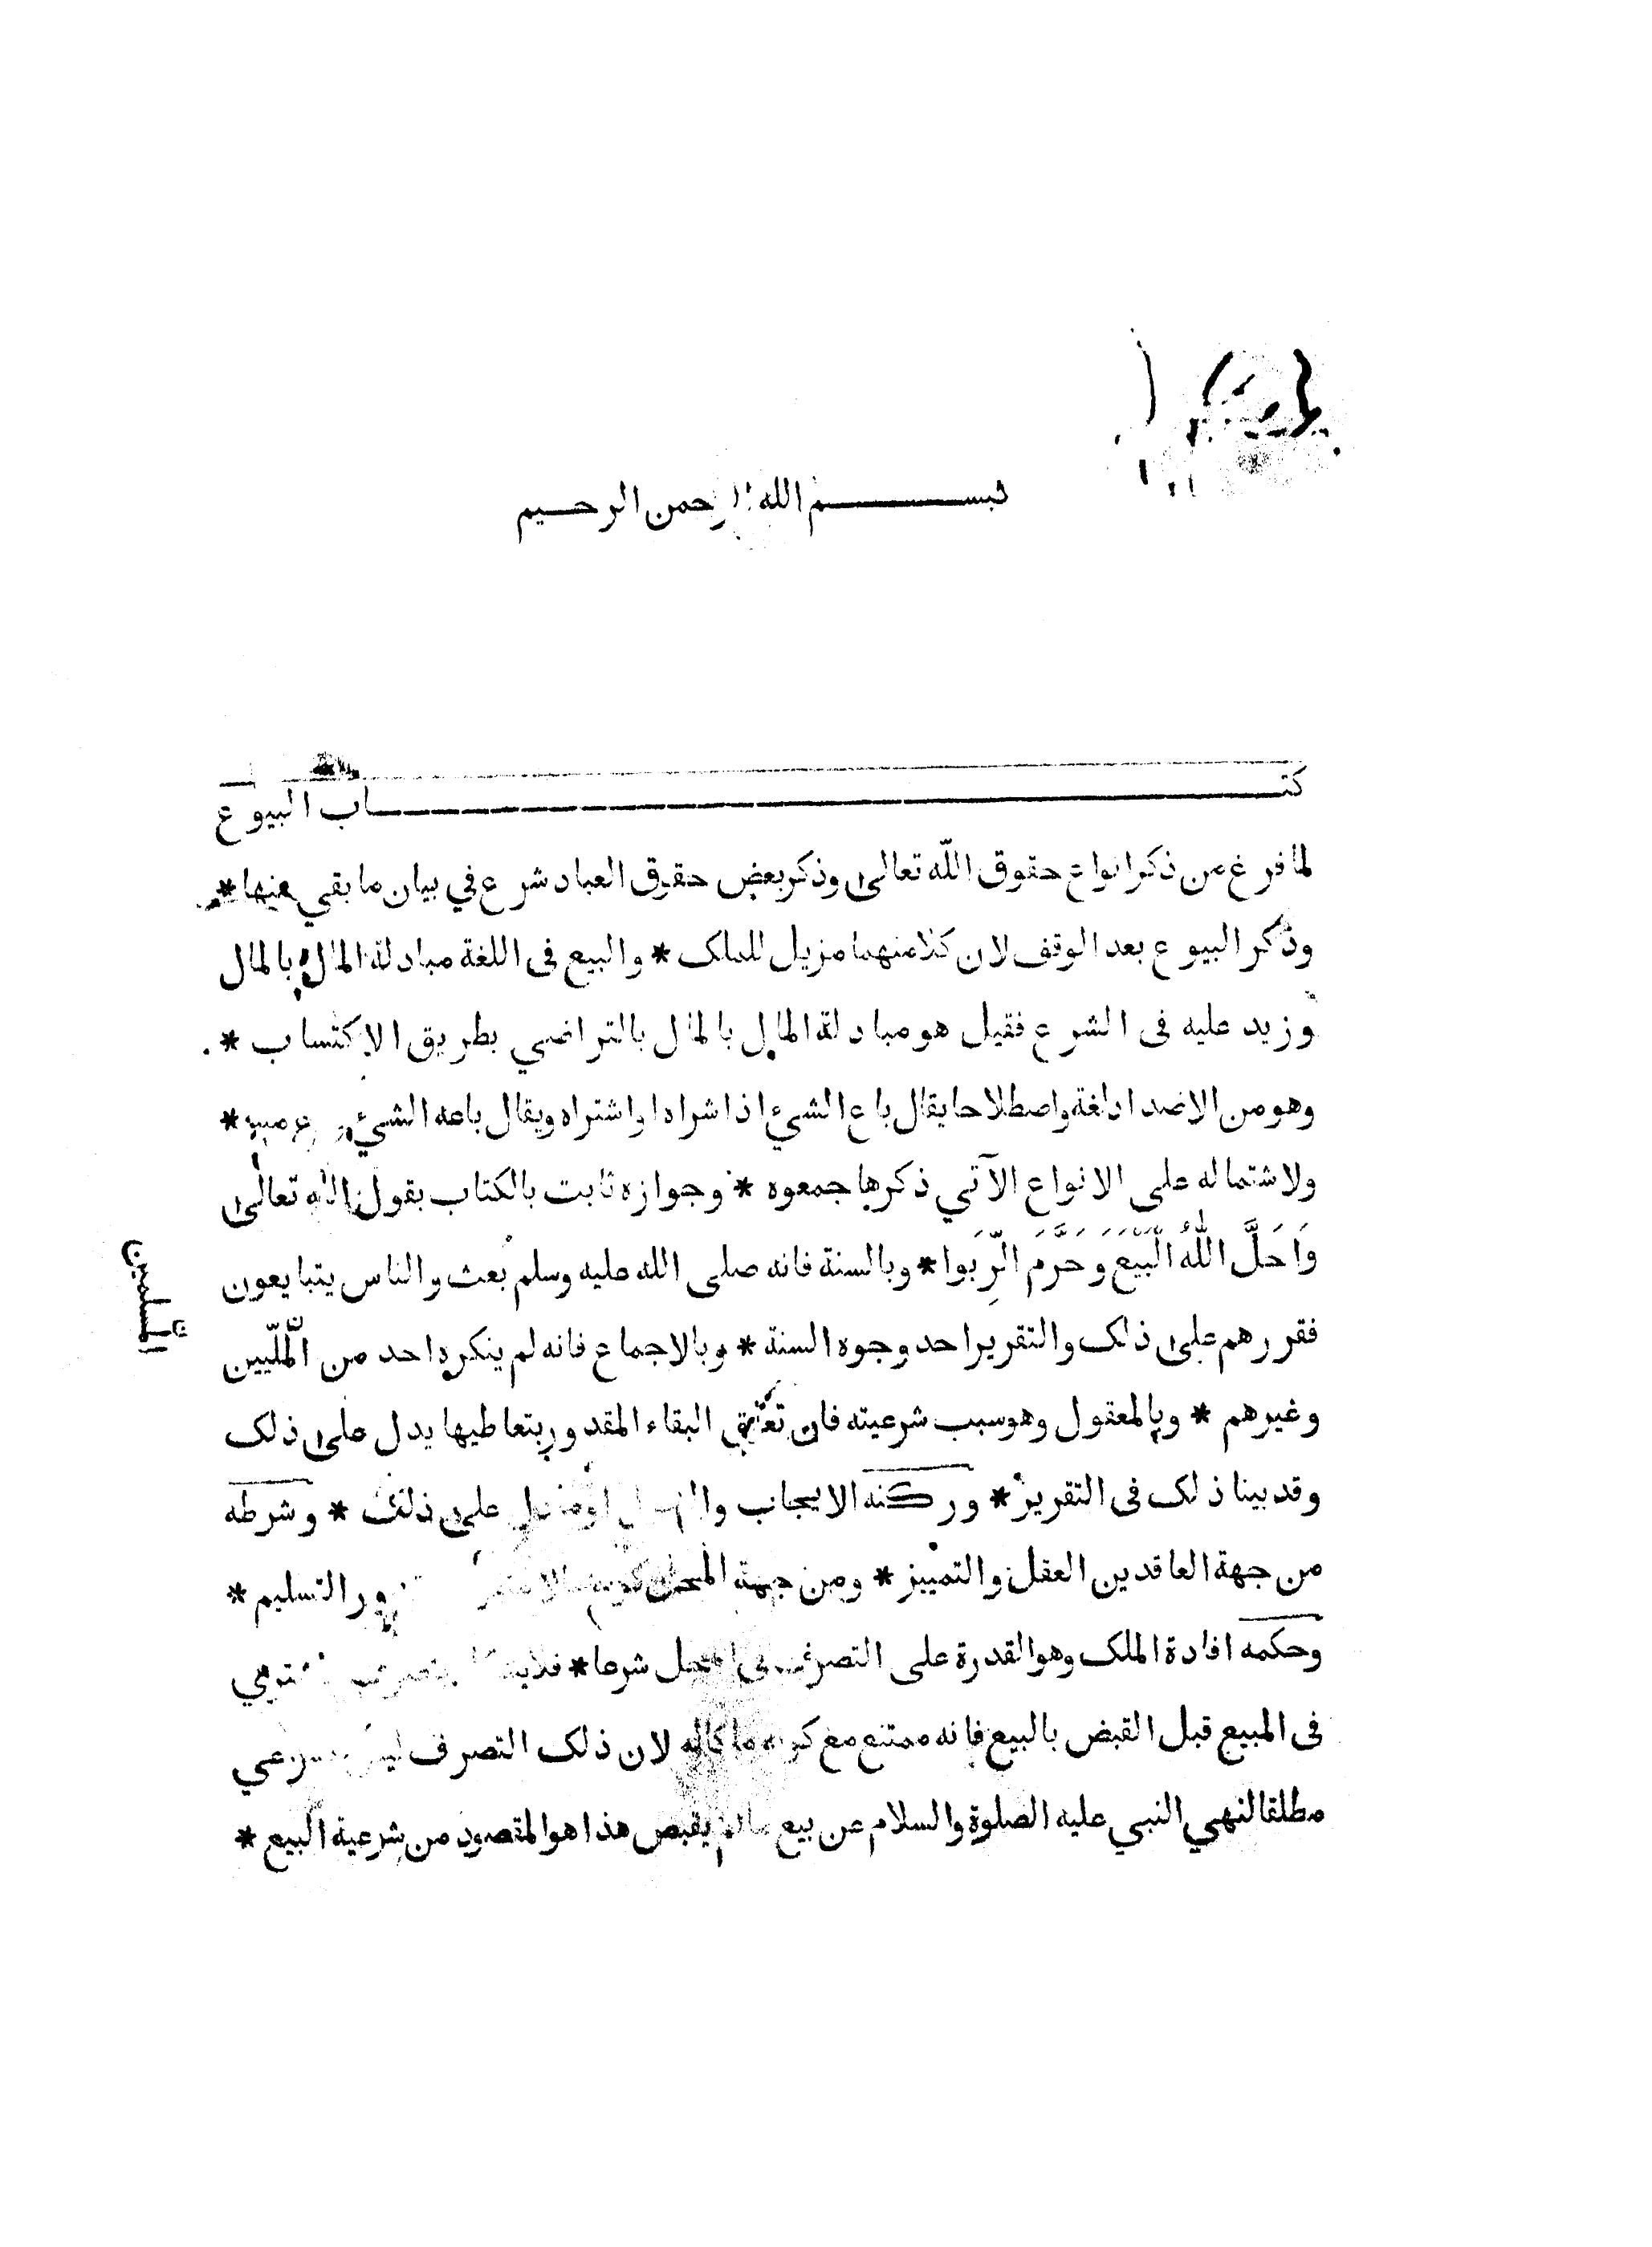 بسم الله الرحمن الرحيم
كتاب البيوع
لما فرغ من ذكر انواع حقوق اللّه تعالى وذكر بعض حقوق العباد شرع في بيان ما بقي منها *
وذكر البيوع بعد الوقف لان كلا منهما مزيل للملک * والبيع فى اللغة مبادلة المال بالمال
وزيد عليه فى الشرع فقيل هو مبادلة المال بالمال بالتراضي بطريق الاكتساب *
وهو من الاضداد لغة واصطلاحا يقال باع الشيء اذا شراه او اشتراه ويقال باعه الشيء
ولاشتماله على الانواع الآتي ذكرها جمعوه * وجوازه ثابت بالكتاب بقول الله تعالى
وَاَحَلَّ اللّٰهُ الْبَيْعَ وَحَرَّمَ الرِّبَوا * وبالسنة فانه صلى الله عليه وسلم بعث والناس يتبايعون
فقررهم على ذلک والتقرير احد وجوه السنة * وبالاجماع فانه لم ينكره احد من الملّيين
المسلمين
وغيرهم * وبالمعقول وهو سبب شرعيته فان تعلق البقاء المقدور بتعاطيها يدل على ذلک
وقد بينا ذلک فى التقرير * وركنه الايجاب على ذلک * وشرطه
من جهة العاقدين العقل والتمييز * ومن جهة المحل التسليم *
وحكمه افادة الملک وهو القدرة على التصرف فى المحل شرعا *
فى المبيع قبل القبض بالبيع فانه ممتنع مع لان ذلک التصرف
مطلقا لنهي النبي عليه الصلوة والسلام عن بيع مالم يقبض هذا هو المقصود من شرعية البيع *